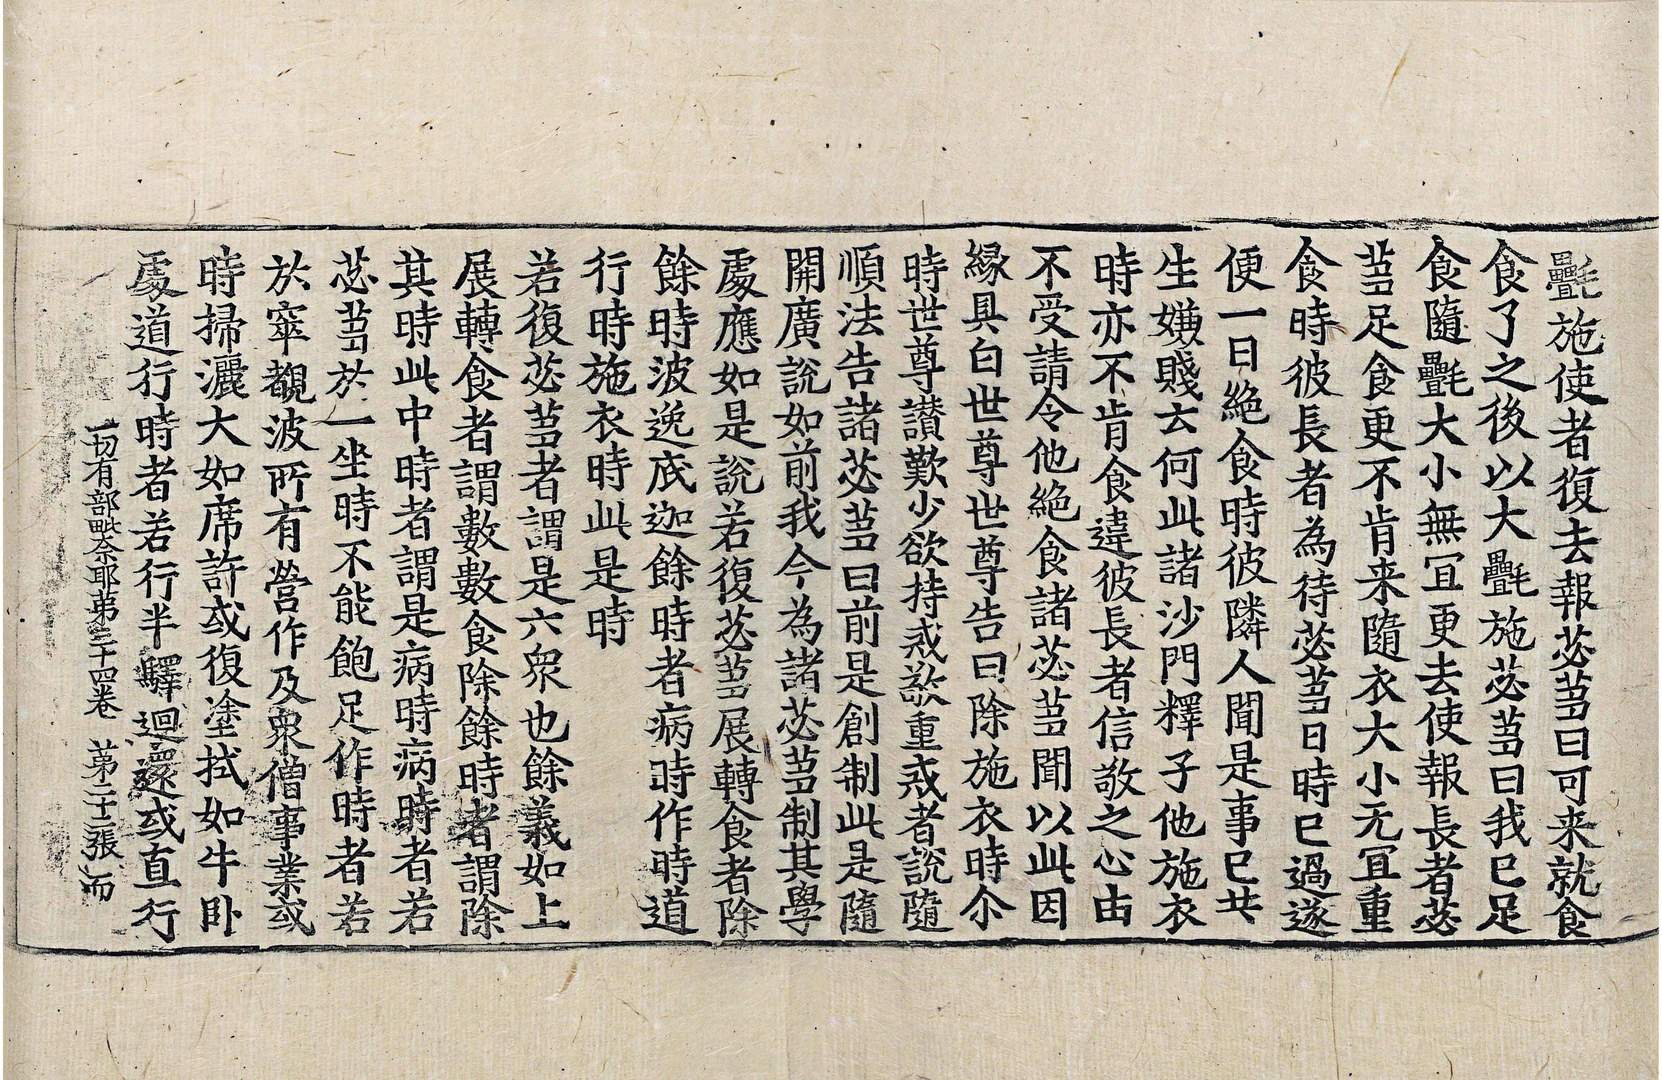 氎施使者復去報苾芻曰可来就食
食了之後以大氎施苾芻曰我已足
食隨氎大小無冝更去使報長者苾
芻足食更不肯来隨衣大小无冝重
食時彼長者為待苾芻日時已過遂
便一日絶食時彼隣人聞是事已共
生嫌賤云何此諸沙門釋子他施衣
時亦不肯食違彼長者信敬之心由
不受請令他絶食諸苾芻聞以此因
縁具白世尊世尊告曰除施衣時尒
時世尊讃歎少欲持戒敬重戒者說隨
順法告諸苾芻曰前是創制此是隨
開廣說如前我今為諸苾芻制其學
處應如是說若復苾芻展轉食者除
餘時波逸底迦餘時者病時作時道
行時施衣時此是時
若復苾芻者謂是六衆也餘義如上
展轉食者謂數數食除餘時者謂除
其時此中時者謂是病時病時者若
苾芻於一坐時不能飽足作時者若
於窣覩波所有營作及衆僧事業或
時掃灑大如席許或復塗拭如牛卧
處道行時者若行半驛迴還或直行
一切有部毗奈耶苐三十四卷 苐二十二張 而